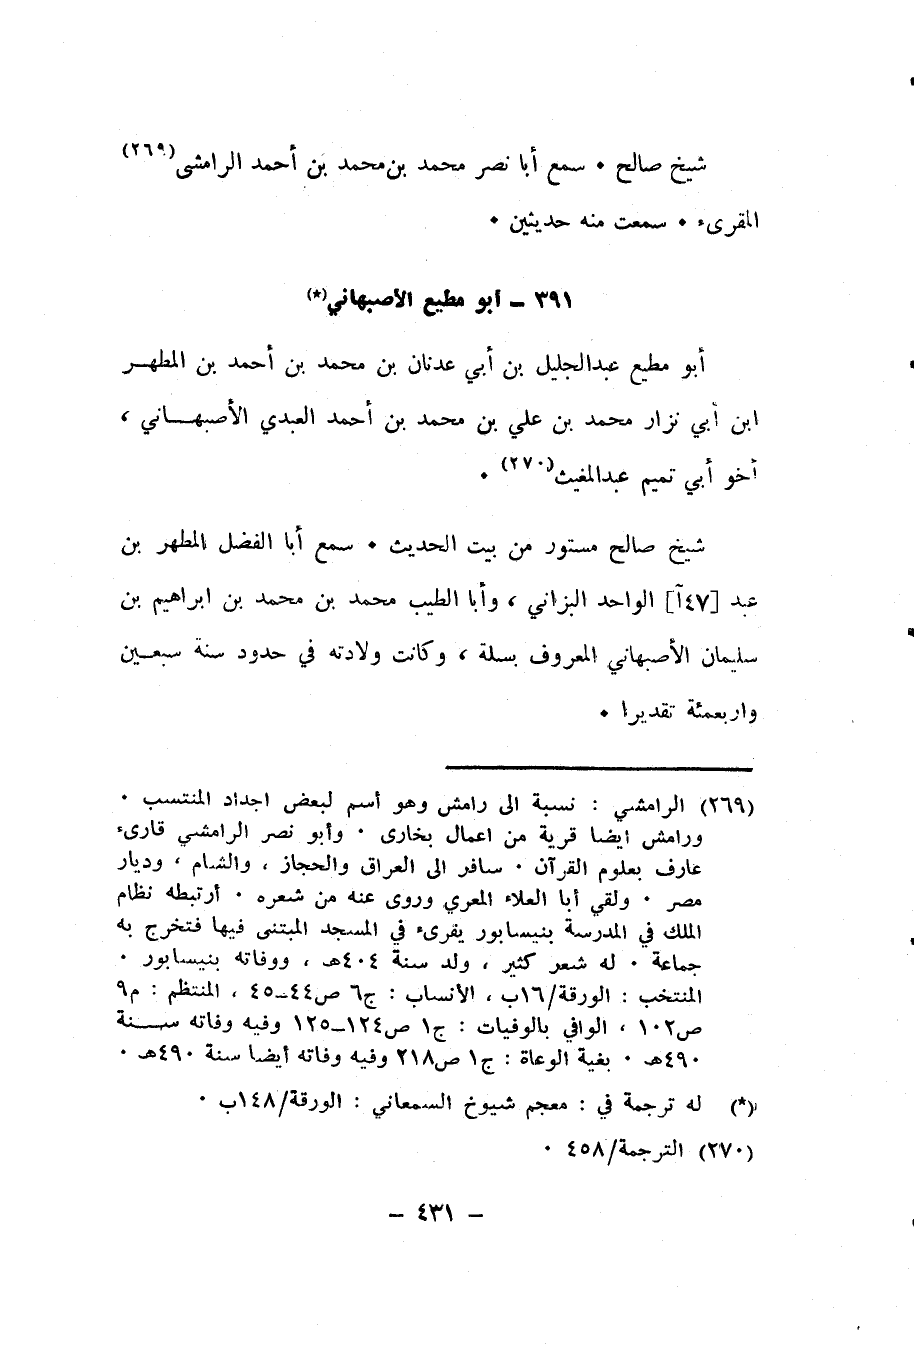 شيخ صالح ٠ سمع أبا نصر محمد بن محمد بن أحمد الرامشي(٢٦٩)
المقرىء ٠ سمعت منه حديثين ٠
٣٩١ ـ أبو مطيع الأصبهاني(*)
أبو مطيع عبدالجليل بن أبي عدنان بن محمد بن أحمد بن المطهـر
ابن أبي نزار محمد بن علي بن محمد بن أحمد العبدي الأصبهـــاني ،
أخو أبي تميم عبدالمغيث(٢٧٠) ٠
شيخ صالح مستور من بيت الحديث ٠ سمع أبا الفضل المطهر بن
عبد [٤٧آ] الواحد البزاني ، وأبا الطيب محمد بن محمد بن ابراهيم بن
سليمان الأصبهاني المعروف بسلة ، وكانت ولادته في حدود سنة سبعـين
واربعمئة تقديرا ٠
(٢٦٩) الرامشي : نسبة الى رامش وهو أسم لبعض اجداد المنتسب ٠
ورامش ايضا قرية من اعمال بخارى ٠ وأبو نصر الرامشي قارىء
عارف بعلوم القرآن ٠ سافر الى العراق والحجاز ، والشام ، وديار
مصر ٠ ولقي أبا العلاء المعري وروى عنه من شعره ٠ أرتبطه نظام
الملك في المدرسة بنيسابور يقرىء في المسجد المبتنى فيها فتخرج به
جماعة ٠ له شعر كثير ، ولد سنة ٤٠٤هـ ، ووفاته بنيسابور ٠
المنتخب : الورقة/١٦ب ، الأنساب : ج٦ ص٤٤ـ٤٥ ، المنتظم : م٩
ص١٠٢ ، الوافي بالوفيات : ج١ ص١٢٤ـ١٢٥ وفيه وفاته ســـنة
٤٩٠هـ ٠ بغية الوعاة : ج١ ص٢١٨ وفيه وفاته أيضا سنة ٤٩٠هـ ٠
(*) له ترجمة في : معجم شيوخ السمعاني : الورقة/١٤٨ب ٠
(٢٧٠) الترجمة/٤٥٨ ٠
ـ ٤٣١ ـ